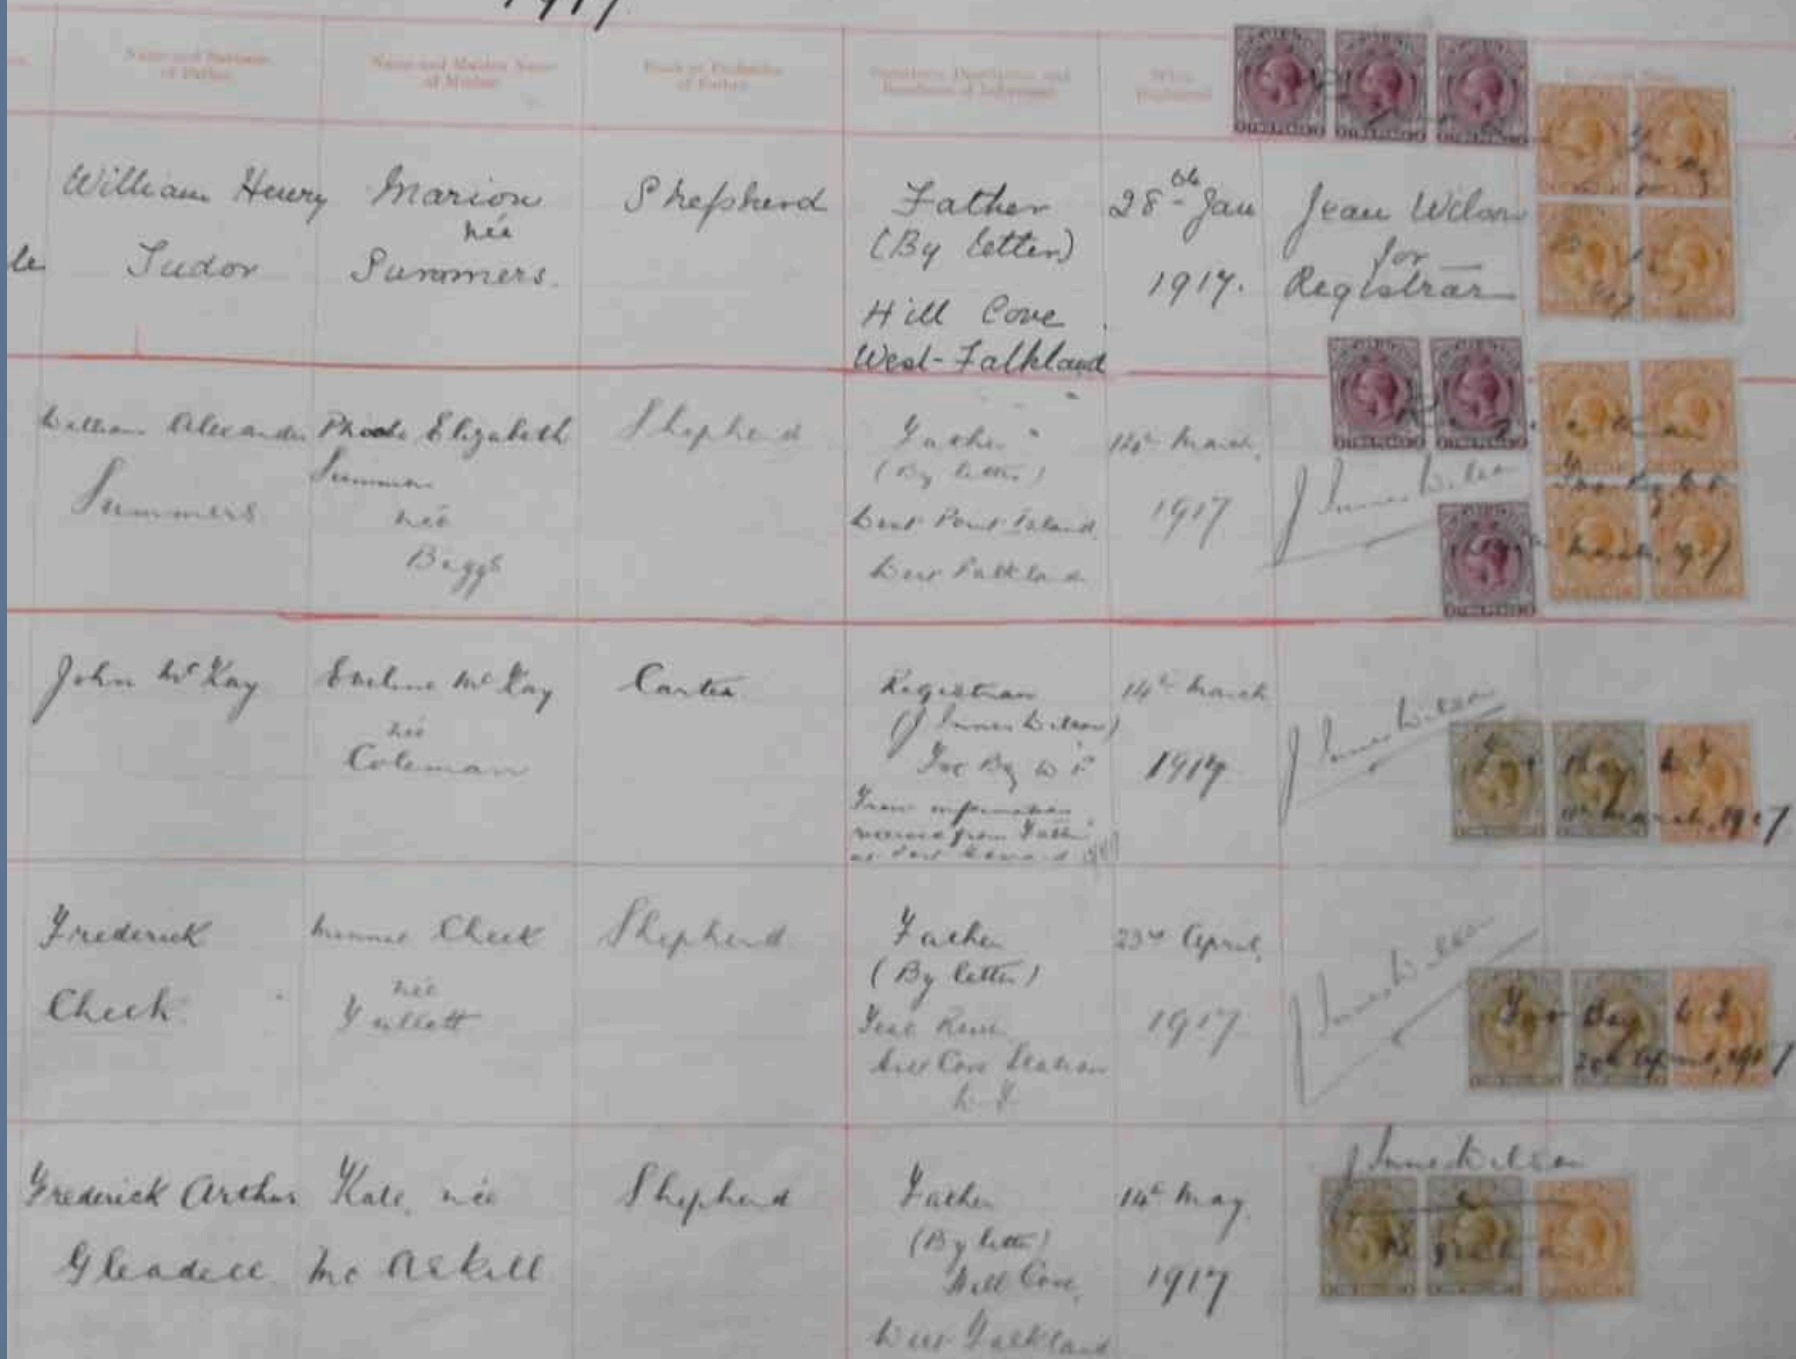 1917
Name and Surname of Father
Name and Maiden Name of Mother
Rank or Profession of Father
Signature, Description and Residence of Informant
When Registered
William Henry
Tudor
Marion
née
Summers.
Shepherd
Father
(By letter)
Hill Cove
West-Falkland
28th Jan
1917.
Jean Wilson
for
Registrar
le
William Alexander
Summers
Phoebe Elizabeth
Summers
née
Biggs
Shepherd
Father
(By letter)
West Point Island,
West Falkland
14th March,
1917
J Innes Wilson
March, 1917
John McKay
Eveline McKay
née
Coleman
Carter
Registrar
(J Innes Wilson)
Fox Bay W F
From information
received from Father
at Port Howard
14th March
1917
J Innes Wilson
Fox Bay W F
March, 1917
Frederick
Cheek
Minnie Cheek
née
Shepherd
Father
(By letter)
Hill Cove Station
W F
23rd April,
1917
J Innes Wilson
Fox Bay W F
April, 1917
Frederick Arthur
Gleadell
Kate, née
McAskill
Shepherd
Father
(By letter)
Hill Cove,
West Falkland
14th May
1917
J Innes Wilson